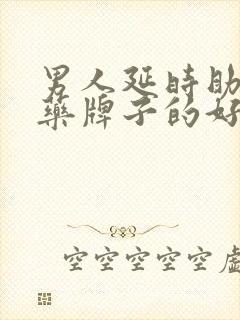 男人延时助
药牌子的好
空空空空空虚